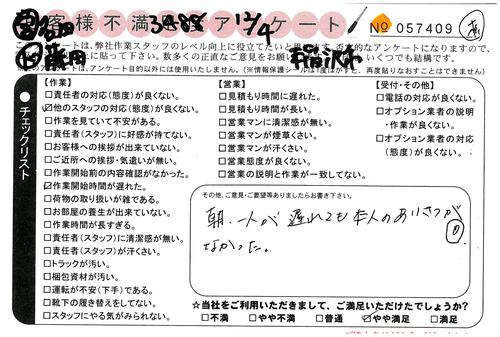 客様不満 ア ケート
3488 12/4
No 057409
ートは、弊社作業スタッフのレベル向上に役立てたいと
に貼って下さい。数多くの正直なご意見をお願い
いくつでも結構です。
アンケート目的以外には使用いたしません。(※情報保護シール
再度貼りなおすことはできません)
●チェックリスト
【作業】
□責任者の対応(態度)が良くない。
☑他のスタッフの対応(態度)が良くない。
□作業を見ていて不安がある。
□責任者(スタッフ)に好感が持てない。
□お客様への挨拶が出来ていない。
□ご近所への挨拶・気遣いが無い。
□作業開始前の内容確認がなかった。
☑作業開始時間が遅れた。
□荷物の取り扱いが雑である。
□お部屋の養生が出来ていない。
□作業時間が長すぎる。
□責任者(スタッフ)に清潔感が無い。
□責任者(スタッフ)が汗くさい。
□トラックが汚い。
□梱包資材が汚い。
□運転が不安(下手)である。
□靴下の履き替えをしてない。
□スタッフにやる気がみられない。
【営業】
□見積もり時間に遅れた。
□見積もり時間が長い。
□営業マンに清潔感が無い。
□営業マンが煙草くさい。
□営業マンが汗くさい。
□営業態度が良くない。
□営業の説明と作業が一致してない。
【受付・その他】
□電話の対応が良くない。
□オプション業者の説明
・作業が良くない。
□オプション業者の対応
(態度)が良くない。
その他、ご意見・ご要望等ありましたらお書き下さい。
朝、一人が遅れても本人のあいさつが
なかった。
☆当社をご利用いただきまして、ご満足いただけたでしょうか?
□不満 □やや不満 □普通 ☑やや満足 □満足